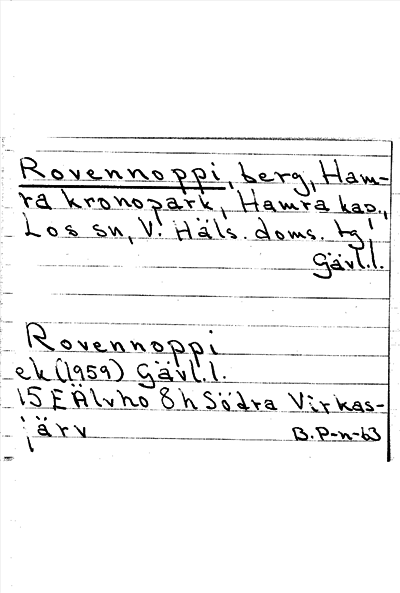 Rovennoppi, berg, Ham-
ra kronopark, Hamra kap.,
Los sn, V. Häls. doms. tg,
Gävl.l.
Rovennoppi
ek (1959) Gävl.l.
15 E Älvho 8 h Södra Virkas-
järv B.P-n-63